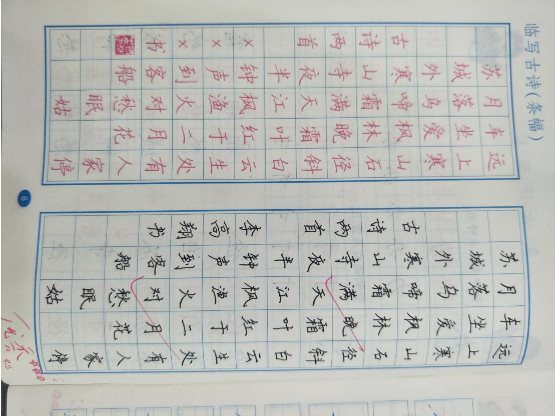 临写古诗(条幅)
远上寒山石径斜白云生处有人家停
车坐爱枫林晚霜叶红于二月花
月落乌啼霜满天江枫渔火对愁眠姑
苏城外寒山寺夜半钟声到客船
古诗两首×××书
6
远上寒山石径斜白云生处有人家停
车坐爱枫林晚霜叶红于二月花
月落乌啼霜满天江枫渔火对愁眠姑
苏城外寒山寺夜半钟声到客船
古诗两首李高翔书